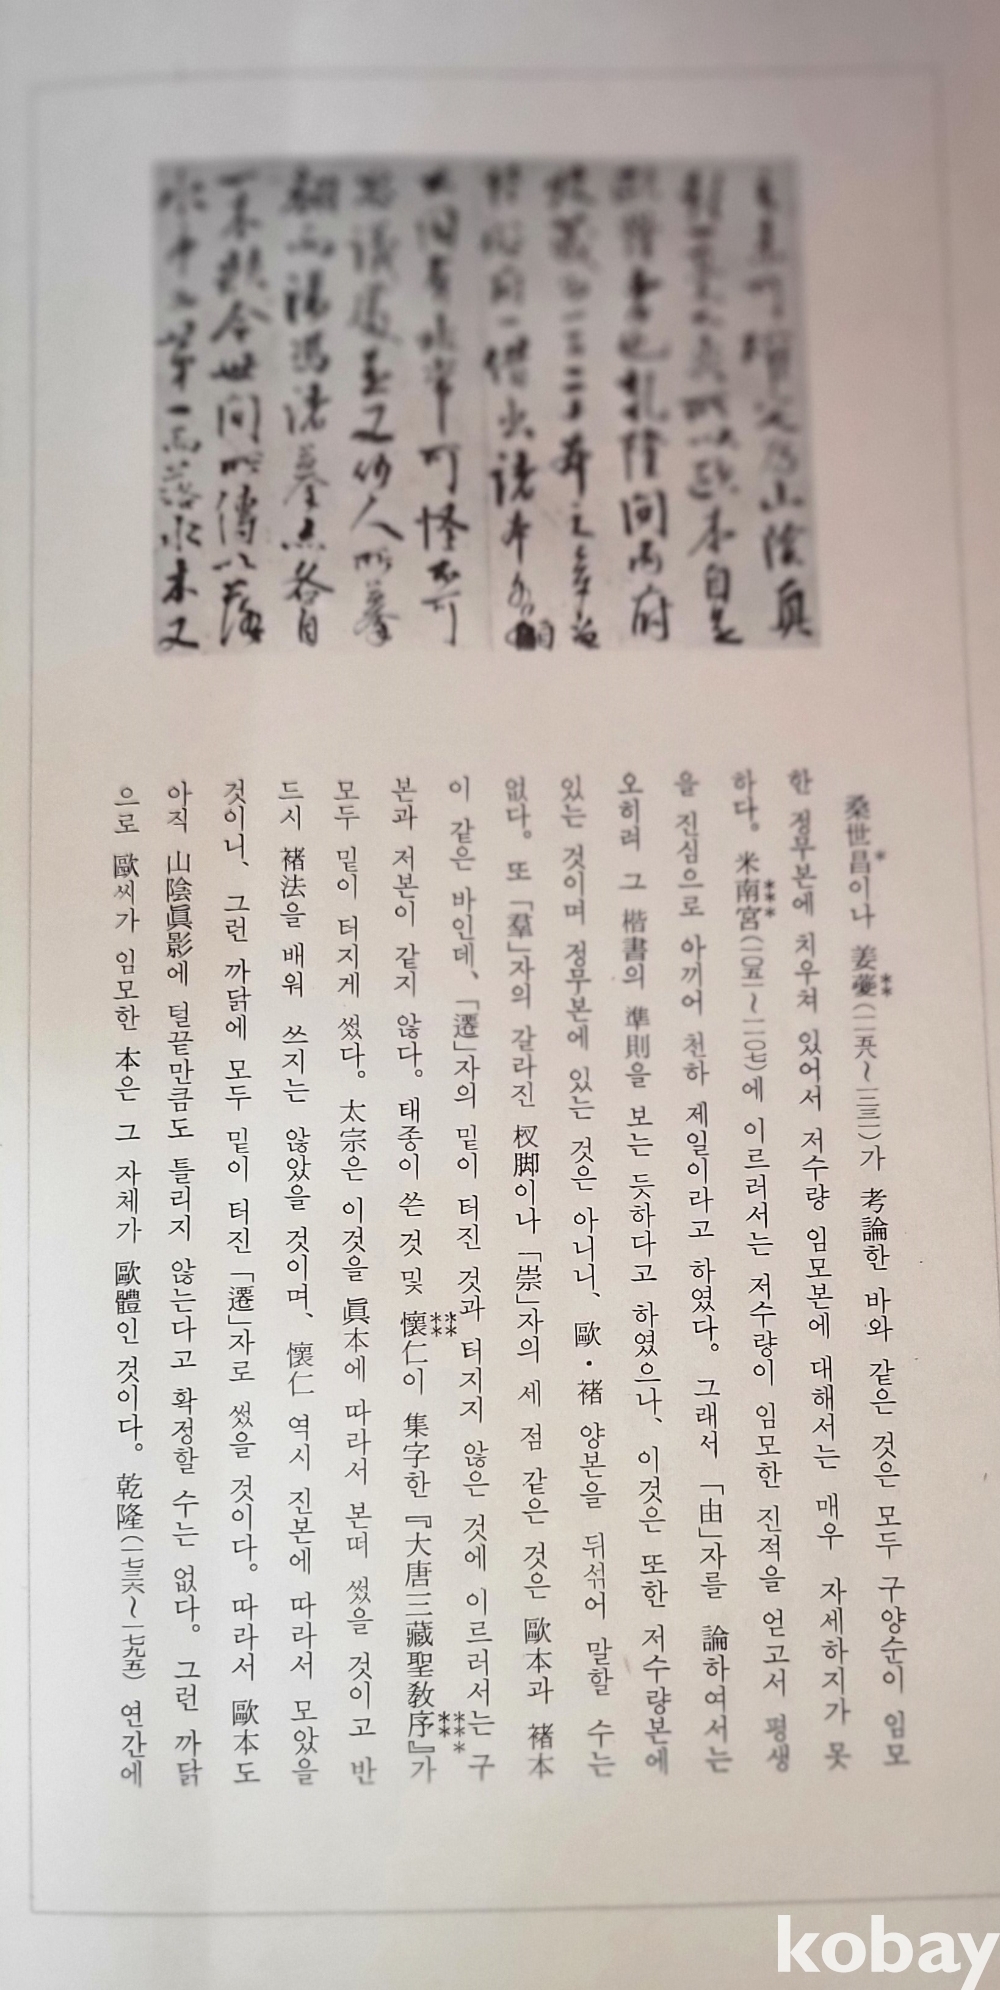 山陰眞
本自是
也乾隆間內府
一百二十本之多
一借出諸本各
大同有非常可怪不可
思議處並又何人所摹
湯馮諸摹亦各自
一本歟今世間所傳以落
水本爲第一而落水本又
桑世昌*이나 姜夔**(一一五八~一二三一)가 考論한 바와 같은 것은 모두 구양순이 임모
한 정무본에 치우쳐 있어서 저수량 임모본에 대해서는 매우 자세하지가 못
하다. 米南宮***(一〇五一~一一〇七)에 이르러서는 저수량이 임모한 진적을 얻고서 평생
을 진심으로 아끼어 천하 제일이라고 하였다. 그래서 「由」자를 論하여서는
오히려 그 楷書의 準則을 보는 듯하다고 하였으나, 이것은 또한 저수량본에
있는 것이며 정무본에 있는 것은 아니니, 歐·褚 양본을 뒤섞어 말할 수는
없다. 또 「羣」자의 갈라진 杈脚이나 「崇」자의 세 점 같은 것은 歐本과 褚本
이 같은 바인데, 「遷」자의 밑이 터진 것과 터지지 않은 것에 이르러서는 구
본과 저본이 같지 않다. 태종이 쓴 것 및 懷仁****이 集字한 『大唐三藏聖敎序』*****가
모두 밑이 터지게 썼다. 太宗은 이것을 眞本에 따라서 본떠 썼을 것이고 반
드시 褚法을 배워 쓰지는 않았을 것이며, 懷仁 역시 진본에 따라서 모았을
것이니, 그런 까닭에 모두 밑이 터진 「遷」자로 썼을 것이다. 따라서 歐本도
아직 山陰眞影에 털끝만큼도 틀리지 않는다고 확정할 수는 없다. 그런 까닭
으로 歐씨가 임모한 本은 그 자체가 歐體인 것이다. 乾隆(一七三六~一七九五) 연간에
kobay